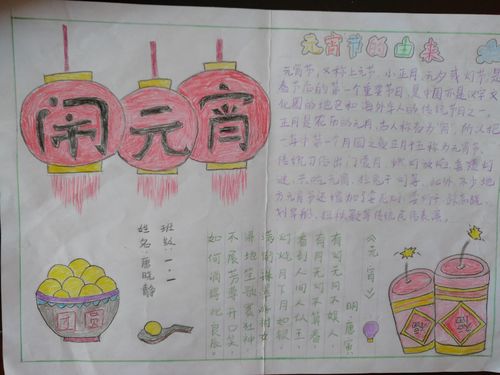 闹元宵
元宵节的由来
元宵节,又称上元节、小正月、元夕或灯节,是
春节后的第一个重要节日,是中国亦是汉字文
化圈的地区和海外华人的传统节日之一。
正月是农历的元月,古人称夜为"宵",所以把
一年中第一个月圆之夜正月十五称为元宵节。
传统习俗出门赏月、燃灯放焰、喜猜灯
谜、共吃元宵、拉兔子灯等。此外,不少地
方元宵节还增加了耍龙灯、耍狮子、踩高跷、
划旱船、扭秧歌等传统民俗表演。
《元宵》
明·唐寅
有灯无月不娱人,
有月无灯不算春。
春到人间人似玉,
灯烧月下月如银。
满街珠翠游村女,
沸地笙歌赛社神。
不展芳尊开口笑,
如何消得此良辰。
班级:一.一
姓名:唐晓静
团圆
福
福